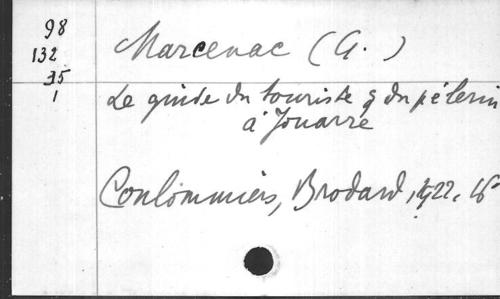 98
132
35
1
Marcenac (G.)
Le guide du touriste & du pélerin
à Jouarre
Coulommiers, Brodard, 1922, 16º